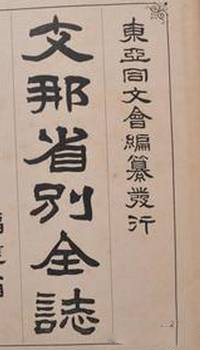 東亞同文會編纂發行
支那省別全誌